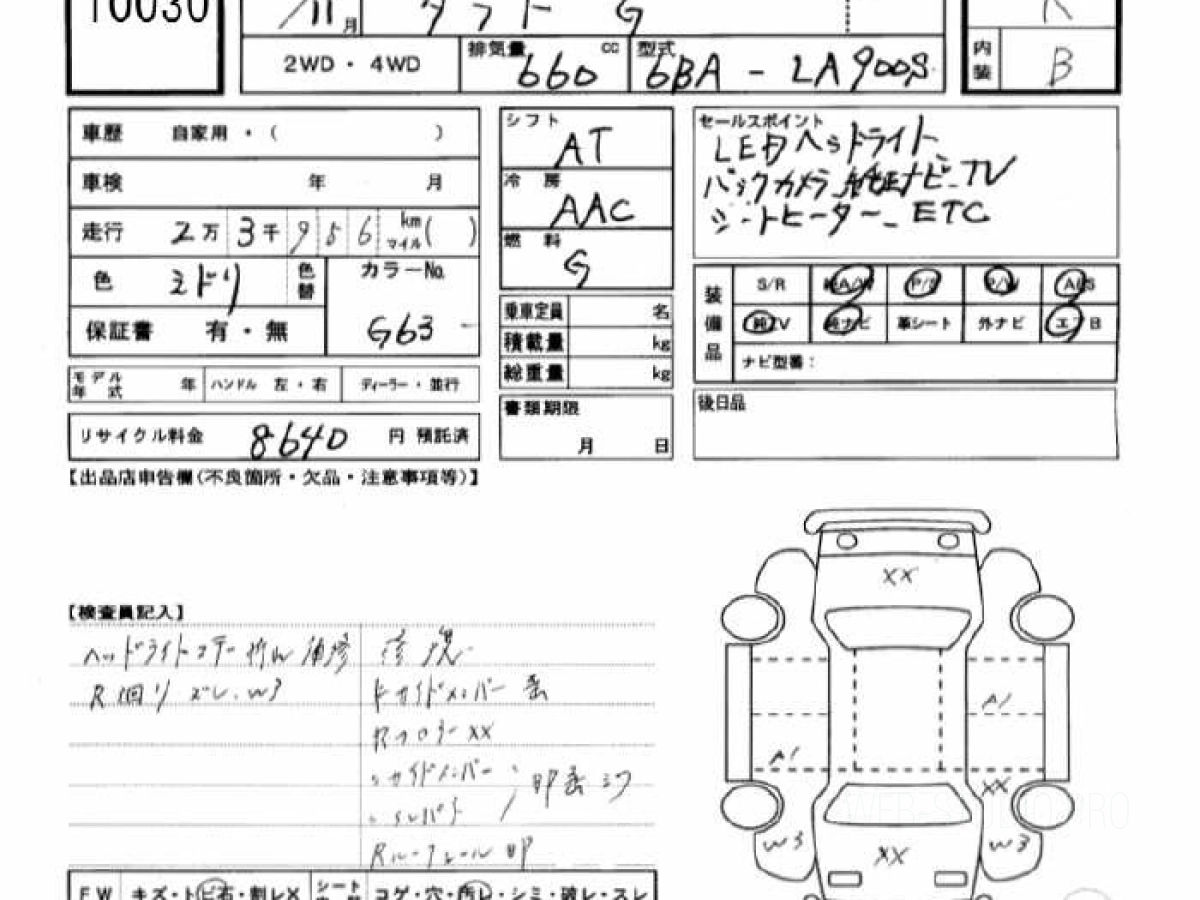 10030
/11月 タフト G
2WD・4WD 排気量 660 cc 型式 6BA-LA900S
内装 B
車歴 自家用・( )
車検 年 月
走行 2万3千956 km マイル( )
色 ミドリ 色替 カラーNo. G63
保証書 有・無
モデル年式 年 ハンドル 左・右 ディーラー・並行
リサイクル料金 8640 円 預託済
シフト AT
冷房 AAC
燃料 G
乗車定員 名
積載量 kg
総重量 kg
書類期限 月 日
セールスポイント
LEDヘッドライト
バックカメラ 純正ナビ TV
シートヒーター ETC
装備品 S/R 純A/W P/S P/W ABS
純TV 純ナビ 革シート 外ナビ エアB
ナビ型番:
後日品
【出品店申告欄(不良箇所・欠品・注意事項等)】
【検査員記入】
ヘッドライトステー折レ補修
R廻りズレ、W3
修復
Rフロアー XX
サイドメンバー
Rルーフレール
XX
A1
A1
XX
W3
W3
XX
FW キズ・トビ石・割レX シート コゲ・穴・汚レ・シミ・破レ・スレ